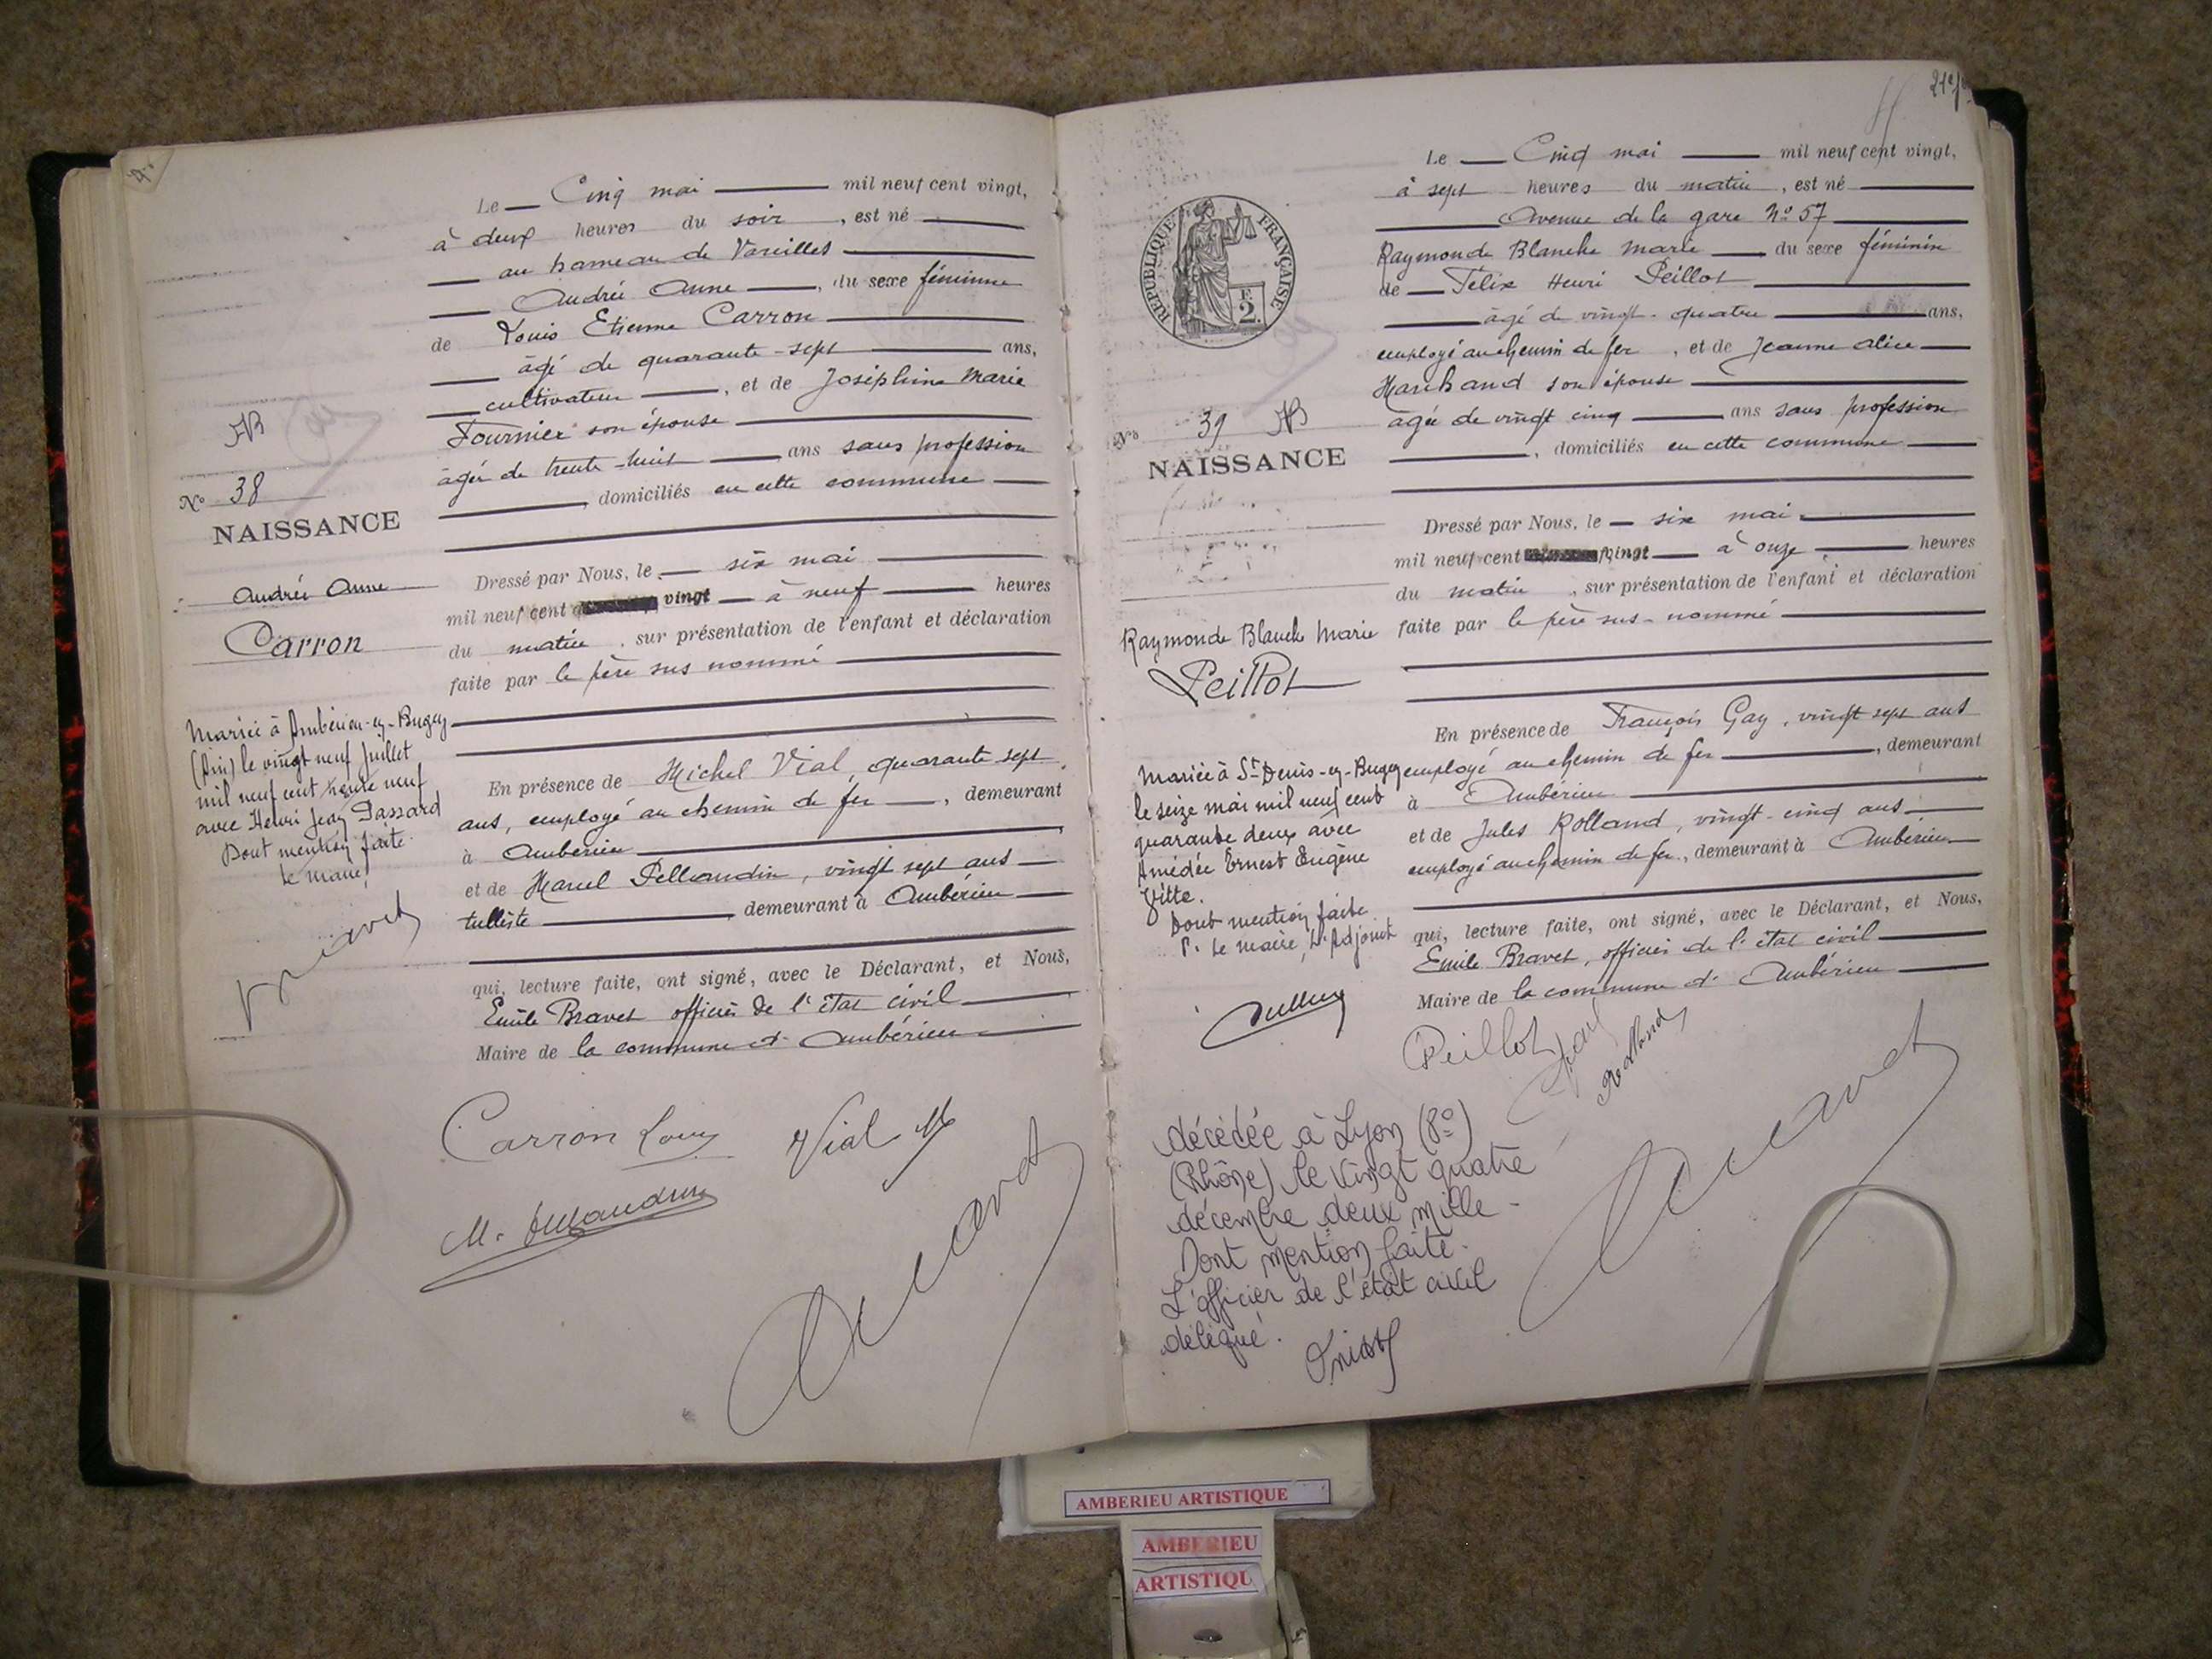 Le Cinq mai mil neuf cent vingt,
à deux heures du soir, est né
au hameau de Vareilles
Andrée Anne, du sexe féminin
de Louis Etienne Carron
âgé de quarante-sept ans,
cultivateur, et de Joséphine Marie
Fournier son épouse
âgée de trente-huit ans sans profession
, domiciliés en cette commune
AB
N° 38
NAISSANCE
Andrée Anne
Carron
Dressé par Nous, le six mai
mil neuf cent vingt à neuf heures
du matin, sur présentation de l'enfant et déclaration
faite par le père sus nommé
Mariée à Ambérieu-en-Bugey
(Ain) le vingt neuf Juillet
mil neuf cent trente neuf
avec Henri Jean Passard
Dont mention faite.
Le Maire,
En présence de Michel Vial, quarante sept
ans, employé au chemin de fer, demeurant
à Ambérieu
et de Marcel Pellaudin, vingt sept ans
tulliste demeurant à Ambérieu
qui, lecture faite, ont signé, avec le Déclarant, et Nous,
Emile Bravet officier de l'état civil
Maire de la commune d'Ambérieu
Carron Louis
Vial M
Le Cinq mai mil neuf cent vingt,
à sept heures du matin, est né
Avenue de la gare N° 57
Raymonde Blanche Marie du sexe féminin
de Félix Henri Peillot
âgé de vingt-quatre ans,
employé au chemin de fer, et de Jeanne Alice
Marchand son épouse
âgée de vingt cinq ans sans profession
, domiciliés en cette commune
REPUBLIQUE FRANÇAISE
F.
2.
N° 39 AB
NAISSANCE
Raymonde Blanche Marie
Peillot
Dressé par Nous, le six mai
mil neuf cent vingt à onze heures
du matin, sur présentation de l'enfant et déclaration
faite par le père sus-nommé
Mariée à St Denis-en-Bugey
le seize mai mil neuf cent
quarante deux avec
Amédée Ernest Eugène
Vitte.
Dont mention faite.
P. Le Maire, L'Adjoint
En présence de François Gay, vingt sept ans
employé au chemin de fer, demeurant
à Ambérieu
et de Jules Rolland, vingt-cinq ans
employé au chemin de fer, demeurant à Ambérieu
qui, lecture faite, ont signé, avec le Déclarant, et Nous,
Emile Bravet, officier de l'état civil
Maire de la commune d'Ambérieu
Peillot
Gay
Rolland
décédée à Lyon (8e)
(Rhône) le vingt quatre
décembre deux mille -
Dont mention faite.
L'officier de l'état civil
délégué.
AMBERIEU ARTISTIQUE
AMBERIEU
ARTISTIQU